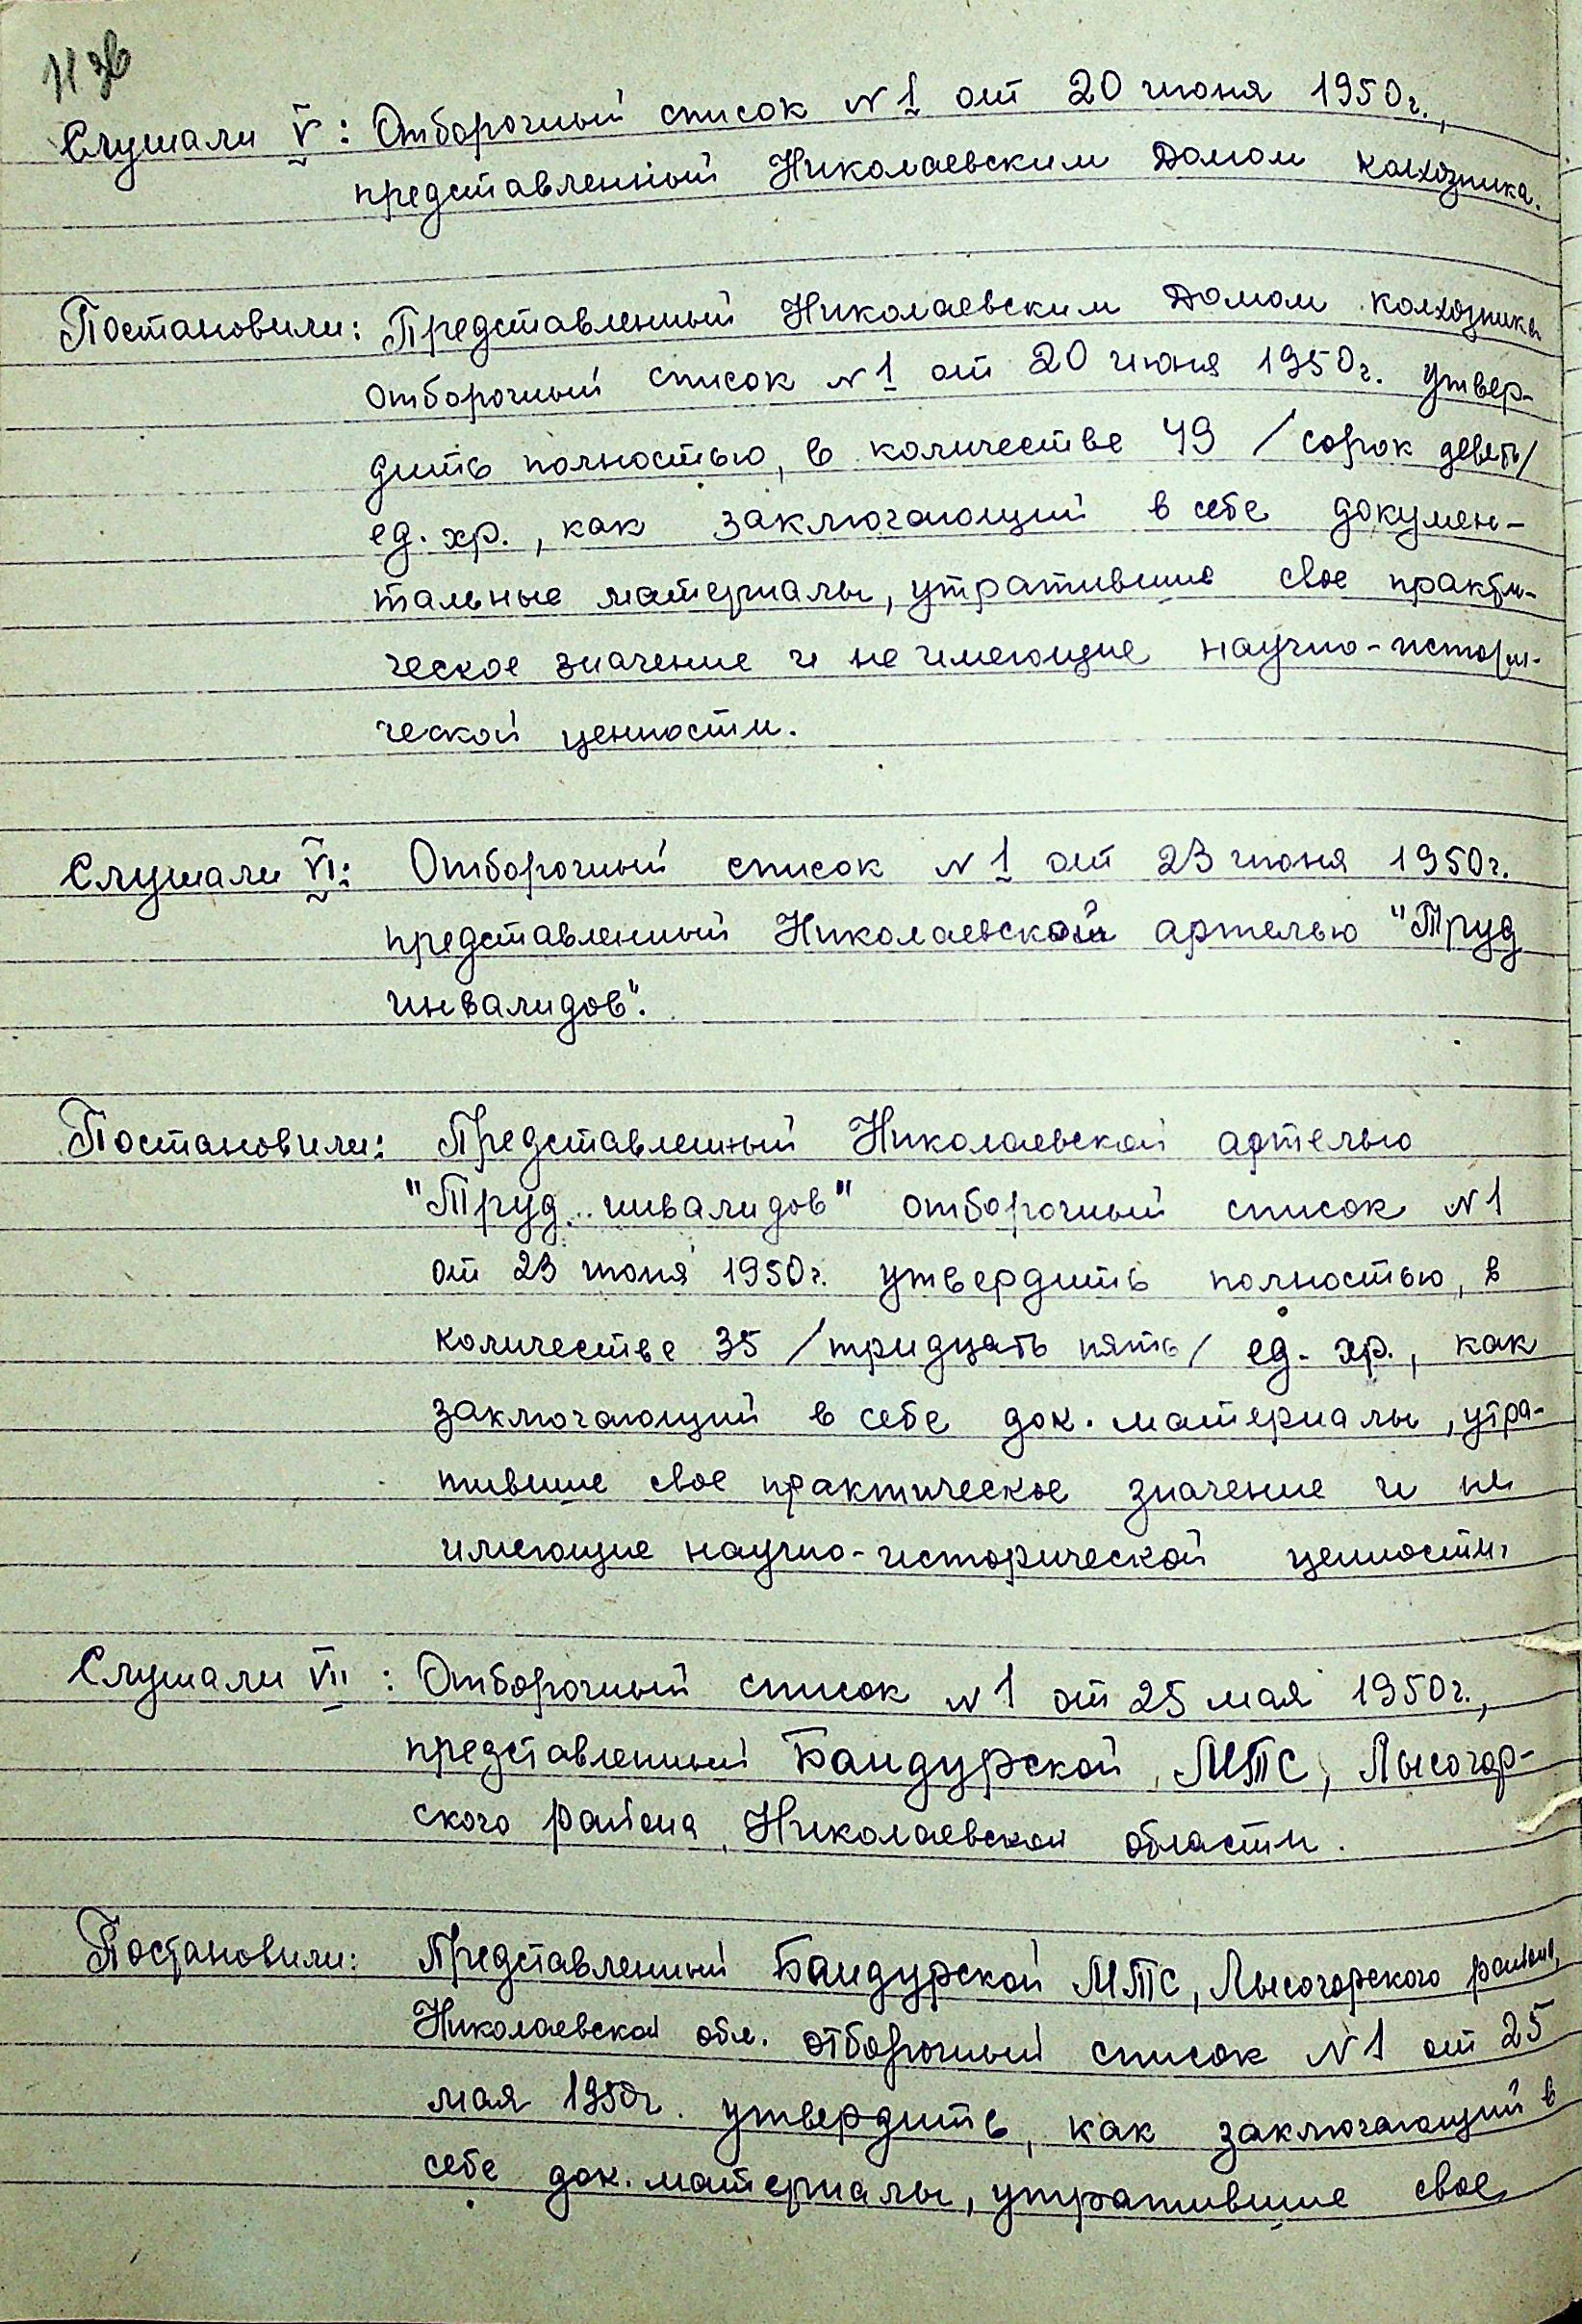 Слушали V: Отборочный список N 1 от 20 июня 1950г.,
представленный Николаевским Домом колхозника.
Постановили: Представленный Николаевским Домом колхозника
отборочный список N 1 от 20 июня 1950г. утвер-
дить полностью, в количестве 49 /сорок девять/
ед. хр., как заключающий в себе докумен-
тальные материалы, утратившие свое практи-
ческое значение и не имеющие научно-истори-
ческой ценности.
Слушали VI: Отборочный список N 1 от 23 июня 1950г.
представленный Николаевской артелью "Труд
инвалидов".
Постановили: Представленный Николаевской артелью
"Труд инвалидов" отборочный список N 1
от 23 июня 1950г. утвердить полностью, в
количестве 35 /тридцать пять/ ед. хр., как
заключающий в себе док. материалы, утра-
тившие свое практическое значение и не
имеющие научно-исторической ценности.
Слушали VII: Отборочный список N 1 от 25 мая 1950г.,
представленный Бандурской МТС, Лысогор-
ского района, Николаевской области.
Постановили: Представленный Бандурской МТС, Лысогорского района,
Николаевской обл. отборочный список N 1 от 25
мая 1950г. утвердить, как заключающий в
себе док. материалы, утратившие свое